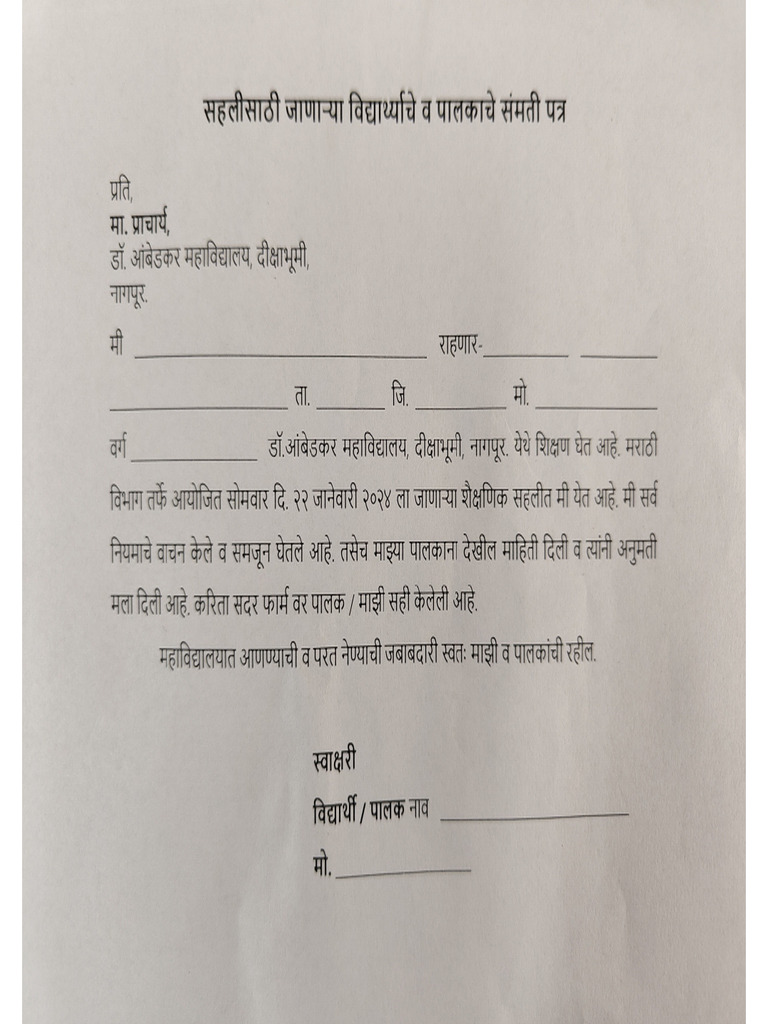 सहलीसाठी जाणाऱ्या विद्यार्थ्याचे व पालकाचे संमती पत्र
प्रति,
मा. प्राचार्य,
डॉ. आंबेडकर महाविद्यालय, दीक्षाभूमी,
नागपूर.
मी ____________________ राहणार-________ ________
____________________ ता. ________ जि. ________ मो. ____________
वर्ग ____________ डॉ.आंबेडकर महाविद्यालय, दीक्षाभूमी, नागपूर. येथे शिक्षण घेत आहे. मराठी
विभाग तर्फे आयोजित सोमवार दि. २२ जानेवारी २०२४ ला जाणाऱ्या शैक्षणिक सहलीत मी येत आहे. मी सर्व
नियमाचे वाचन केले व समजून घेतले आहे. तसेच माझ्या पालकाना देखील माहिती दिली व त्यांनी अनुमती
मला दिली आहे. करिता सदर फार्म वर पालक / माझी सही केलेली आहे.
महाविद्यालयात आणण्याची व परत नेण्याची जबाबदारी स्वतः माझी व पालकांची रहील.
स्वाक्षरी
विद्यार्थी / पालक नाव ____________________
मो. ______________